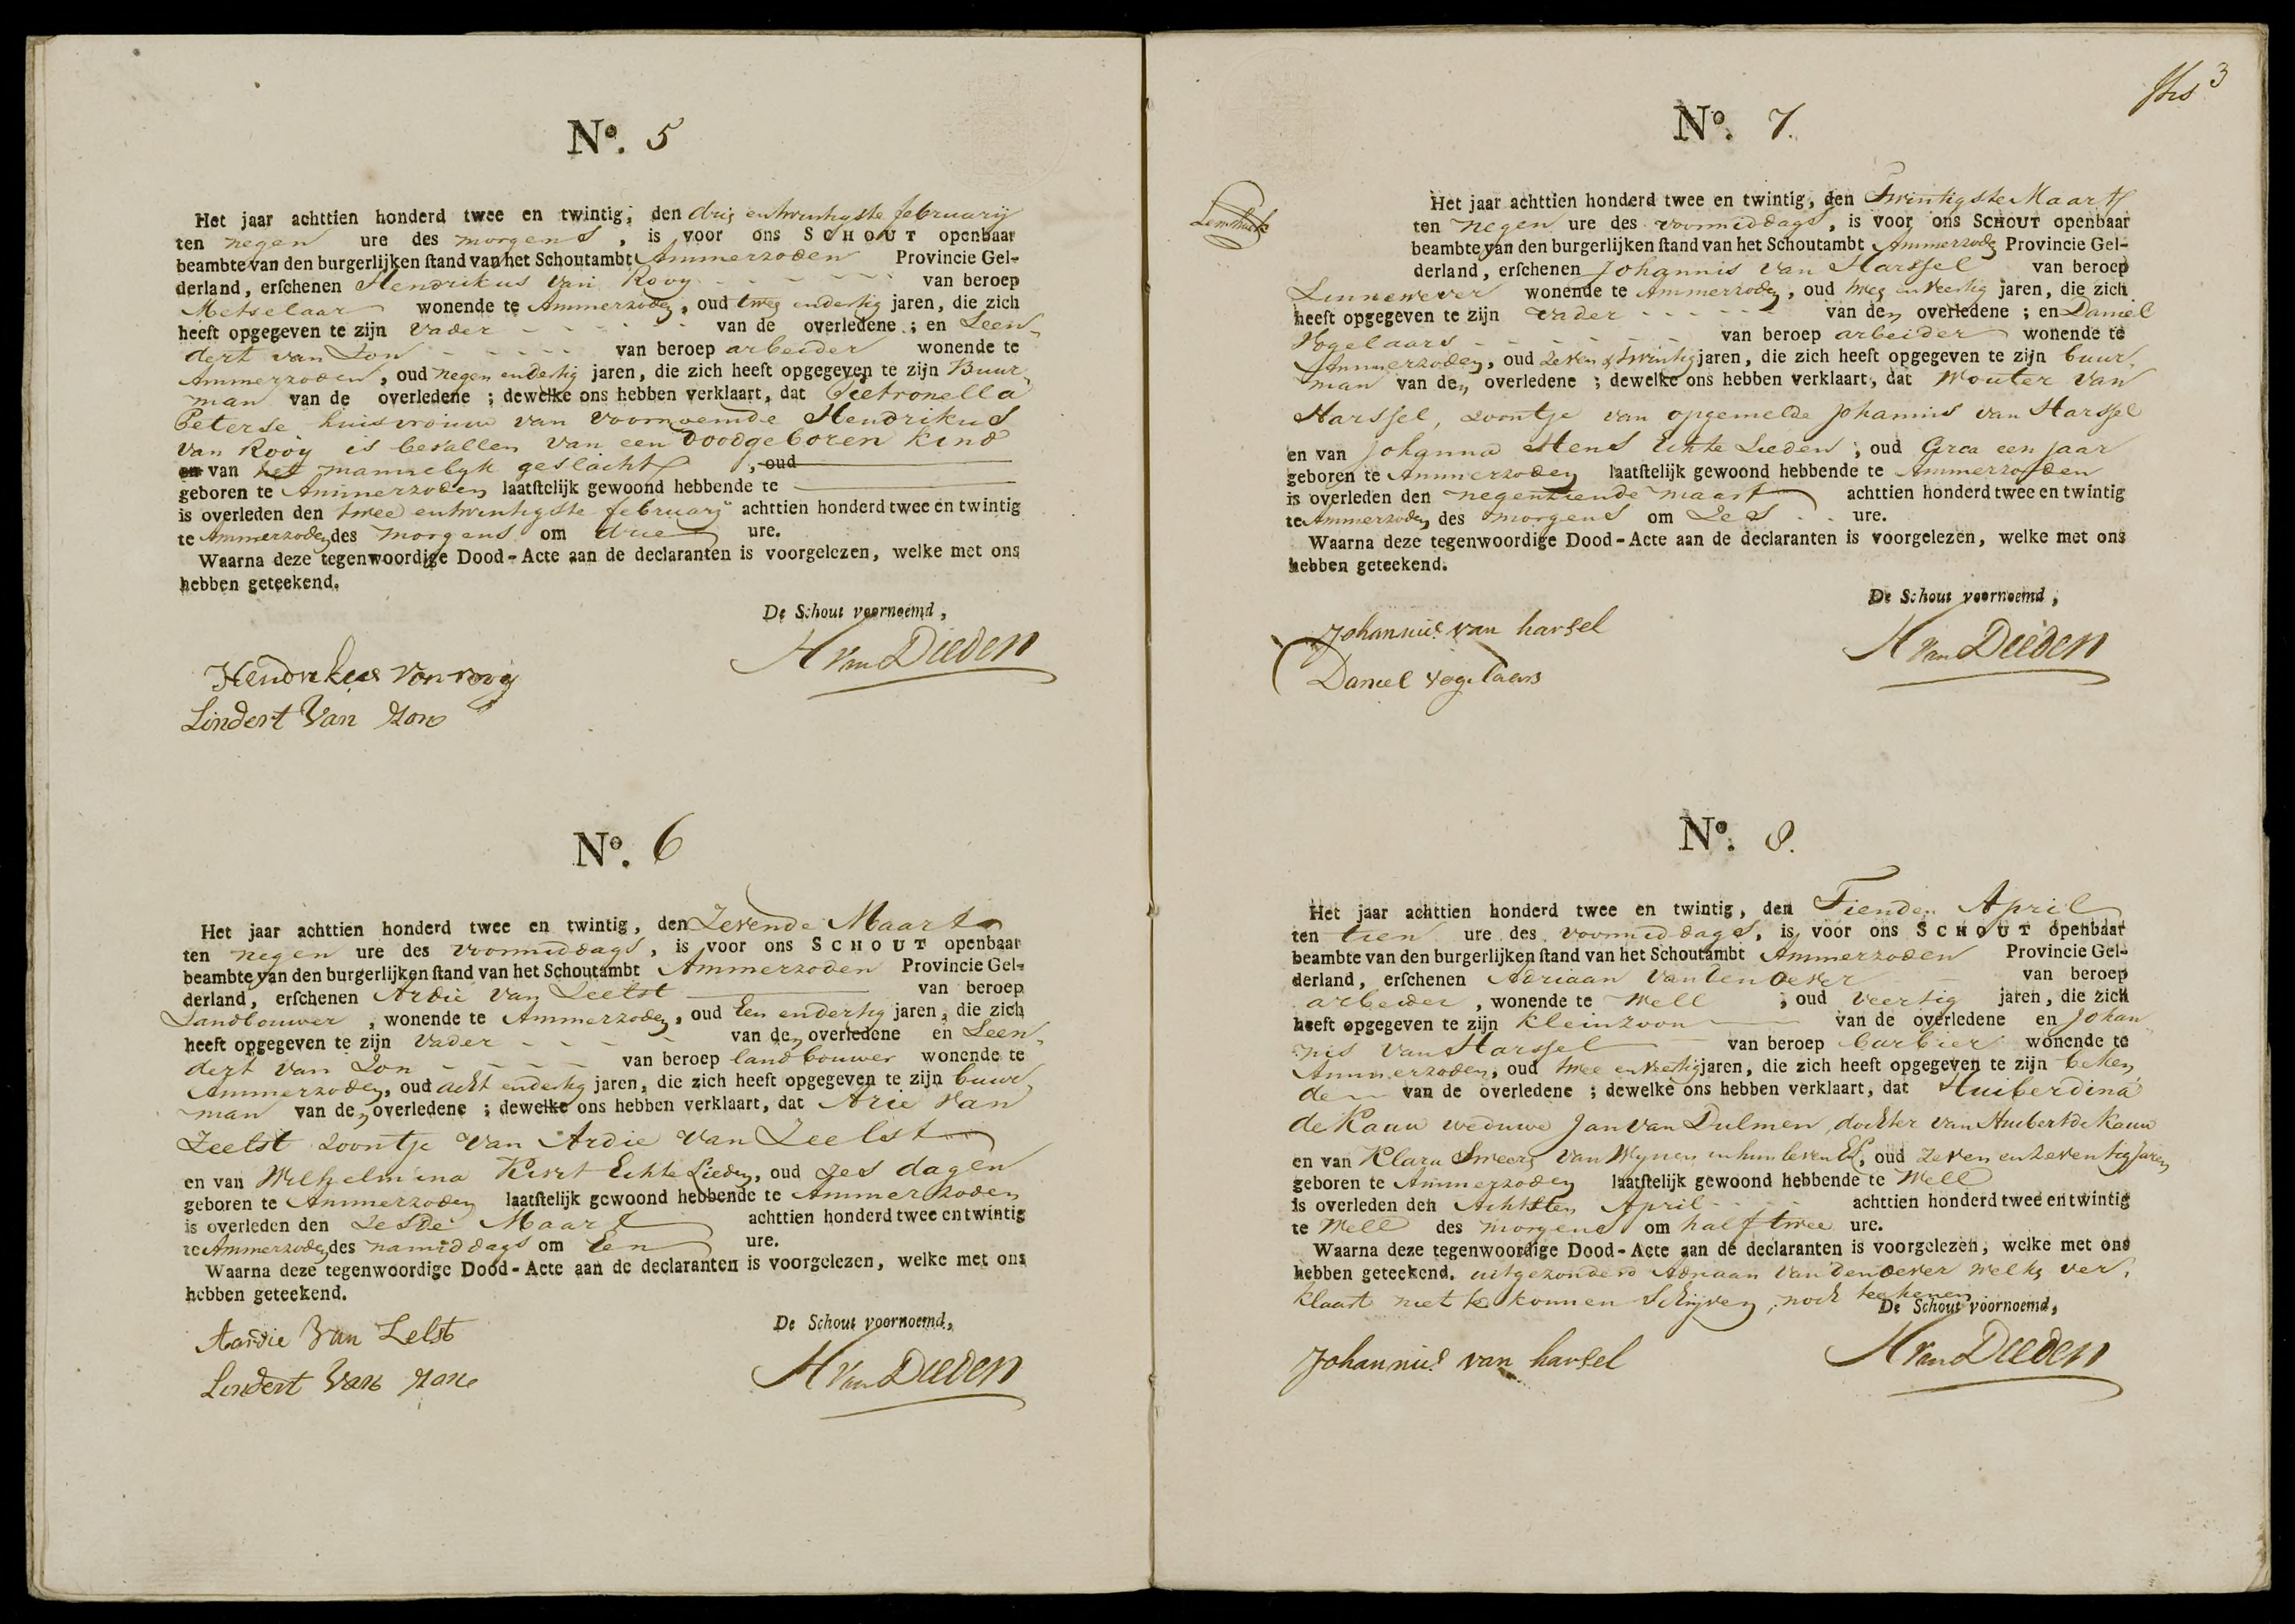 No. 5
Het jaar achttien honderd twee en twintig, den drij en twintigste februarij
ten negen ure des morgens, is voor ons SCHOUT openbaar
beambte van den burgerlijken stand van het Schoutambt Ammerzoden Provincie Gel-
derland, erschenen Hendrikus van Rooy - - - - - van beroep
Metselaar wonende te Ammerzoden, oud tweg en dertig jaren, die zich
heeft opgegeven te zijn Vader - - - - - van de overledene ; en Leen-
dert van Zon - - - - - van beroep arbeider wonende te
Ammerzoden, oud negen en dertig jaren, die zich heeft opgegeven te zijn Buur-
man van de overledene ; dewelke ons hebben verklaart, dat Pietronella
Peterse huisvrouw van voornoemde Hendrikus
van Rooij is bevallen van een doodgeboren kind
en van het mannelyk geslacht, oud
geboren te Ammerzoden laatstelijk gewoond hebbende te
is overleden den twee en twintigste februarij achttien honderd twee en twintig
te Ammerzoden des morgens om drie ure.
Waarna deze tegenwoordige Dood-Acte aan de declaranten is voorgelezen, welke met ons
hebben geteekend.
De Schout voornoemd,
H van Dieden
Hendrikus Van rooij
Lindert Van Zon
No. 6
Het jaar achttien honderd twee en twintig, den Zevende Maart
ten negen ure des voormiddags, is voor ons SCHOUT openbaar
beambte van den burgerlijken stand van het Schoutambt Ammerzoden Provincie Gel-
derland, erschenen Ardie van Zeelst van beroep
Landbouwer, wonende te Ammerzoden, oud Een en dertig jaren, die zich
heeft opgegeven te zijn Vader - - - - van den overledene en Leen-
dert van Zon - - - - van beroep landbouwer wonende te
Ammerzoden, oud acht en dertig jaren, die zich heeft opgegeven te zijn buur-
man van den overledene ; dewelke ons hebben verklaart, dat Arie van
Zeelst zoontje van Ardie van Zeelst
en van Wilhelmina Echte Lieden, oud zes dagen
geboren te Ammerzoden laatstelijk gewoond hebbende te Ammerzoden
is overleden den Zesde Maart achttien honderd twee en twintig
te Ammerzoden des namiddags om Een ure.
Waarna deze tegenwoordige Dood-Acte aan de declaranten is voorgelezen, welke met ons
hebben geteekend.
De Schout voornoemd,
H van Dieden
Aardie Van Zelst
Lindert Van Zon
3
No. 7.
Het jaar achttien honderd twee en twintig, den Twintigste Maart
ten negen ure des voormiddags, is voor ons SCHOUT openbaar
beambte van den burgerlijken stand van het Schoutambt Ammerzoden Provincie Gel-
derland, erschenen Johannis van Harssel van beroep
Linnewever wonende te Ammerzoden, oud tweg en veertig jaren, die zich
heeft opgegeven te zijn Vader - - - - - van den overledene ; en Daniel
Vogelaars - - - - - van beroep arbeider wonende te
Ammerzoden, oud zeven & twintig jaren, die zich heeft opgegeven te zijn buur-
man van den overledene ; dewelke ons hebben verklaart, dat Wouter van
Harssel, zoontje van opgemelde Johannis van Harssel
en van Johanna Echte Lieden ; oud Circa een jaar
geboren te Ammerzoden laatstelijk gewoond hebbende te Ammerzoden
is overleden den negentiende maart achttien honderd twee en twintig
te Ammerzoden des morgens om Zes ure.
Waarna deze tegenwoordige Dood-Acte aan de declaranten is voorgelezen, welke met ons
hebben geteekend.
De Schout voornoemd,
H van Dieden
Johannis van harsel
Daniel vogelaars
No. 8.
Het jaar achttien honderd twee en twintig, den Tienden April
ten tien ure des voormiddags, is voor ons SCHOUT openbaar
beambte van den burgerlijken stand van het Schoutambt Ammerzoden Provincie Gel-
derland, erschenen Adriaan van den Oever van beroep
arbeider, wonende te Well, oud veertig jaren, die zich
heeft opgegeven te zijn kleinzoon van de overledene en Johan-
nis van Harssel van beroep barbier wonende te
Ammerzoden, oud twee en veertig jaren, die zich heeft opgegeven te zijn beken-
de van de overledene ; dewelke ons hebben verklaart, dat Huiberdina
de Kaau weduwe Jan van Dulmen, dochter van Huibert de Kauw
en van Klara Smeers van Wynen in hun leven El, oud zeven en zeventig Jaren
geboren te Ammerzoden laatstelijk gewoond hebbende te Well
is overleden den Achtsten April achttien honderd twee en twintig
te Well des morgens om half twee ure.
Waarna deze tegenwoordige Dood-Acte aan de declaranten is voorgelezen, welke met ons
hebben geteekend. uitgezonderd Adriaan van den oever welke ver-
klaart niet te konnen Schryven, noch teekenen
De Schout voornoemd,
H van Dieden
Johannis van harsel